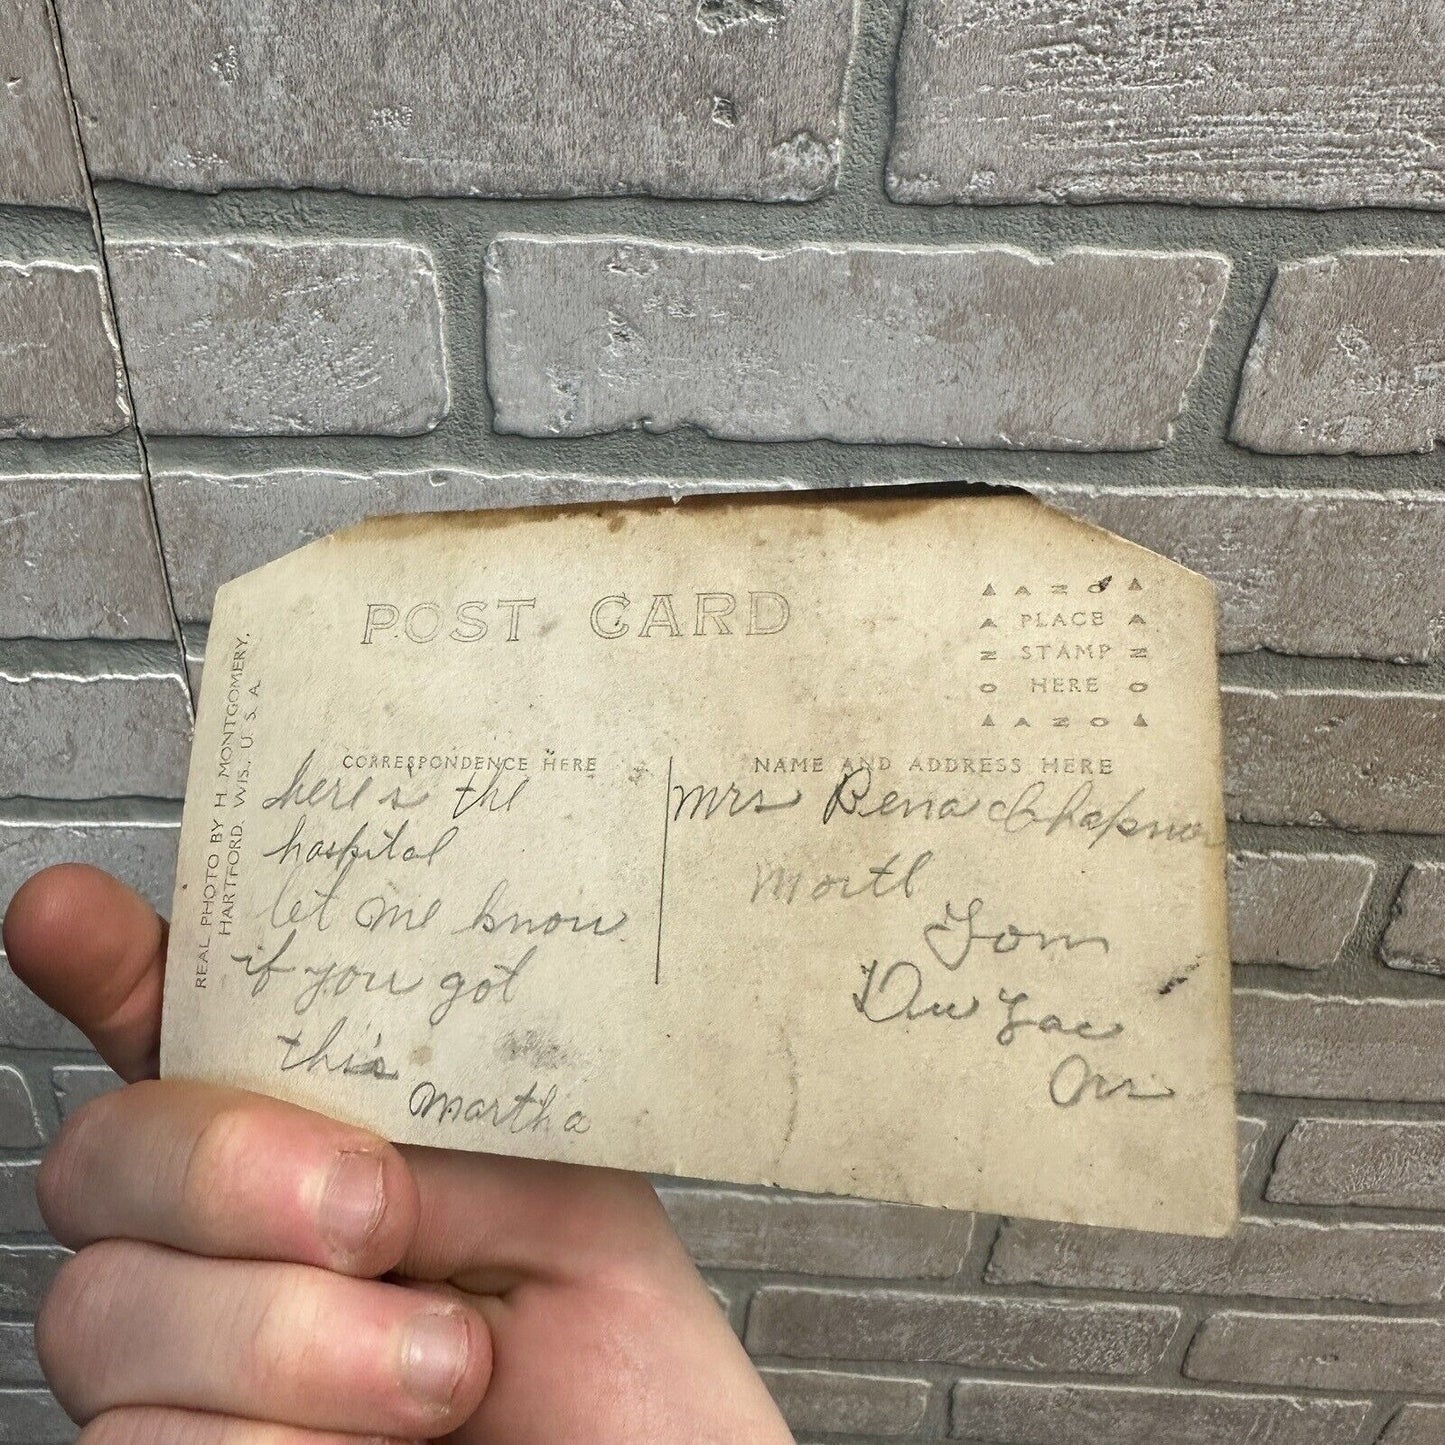 POST CARD
▲ A Z O ▲
▲ PLACE ▲
N STAMP N
O HERE O
▲ A Z O ▲
REAL PHOTO BY H. MONTGOMERY,
HARTFORD. WIS., U. S. A.
CORRESPONDENCE HERE
here's the
hospital
let me know
if you got
this
Martha
NAME AND ADDRESS HERE
Mrs Bena
North
Fon
Du Lac